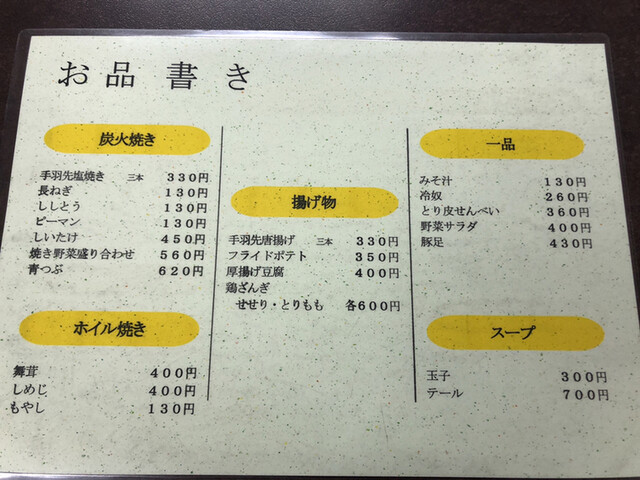 お品書き
炭火焼き
手羽先塩焼き 三本 330円
長ねぎ 130円
ししとう 130円
ピーマン 130円
しいたけ 450円
焼き野菜盛り合わせ 560円
青つぶ 620円
ホイル焼き
舞茸 400円
しめじ 400円
もやし 130円
揚げ物
手羽先唐揚げ 三本 330円
フライドポテト 350円
厚揚げ豆腐 400円
鶏ざんぎ
せせり・とりもも 各600円
一品
みそ汁 130円
冷奴 260円
とり皮せんべい 360円
野菜サラダ 400円
豚足 430円
スープ
玉子 300円
テール 700円